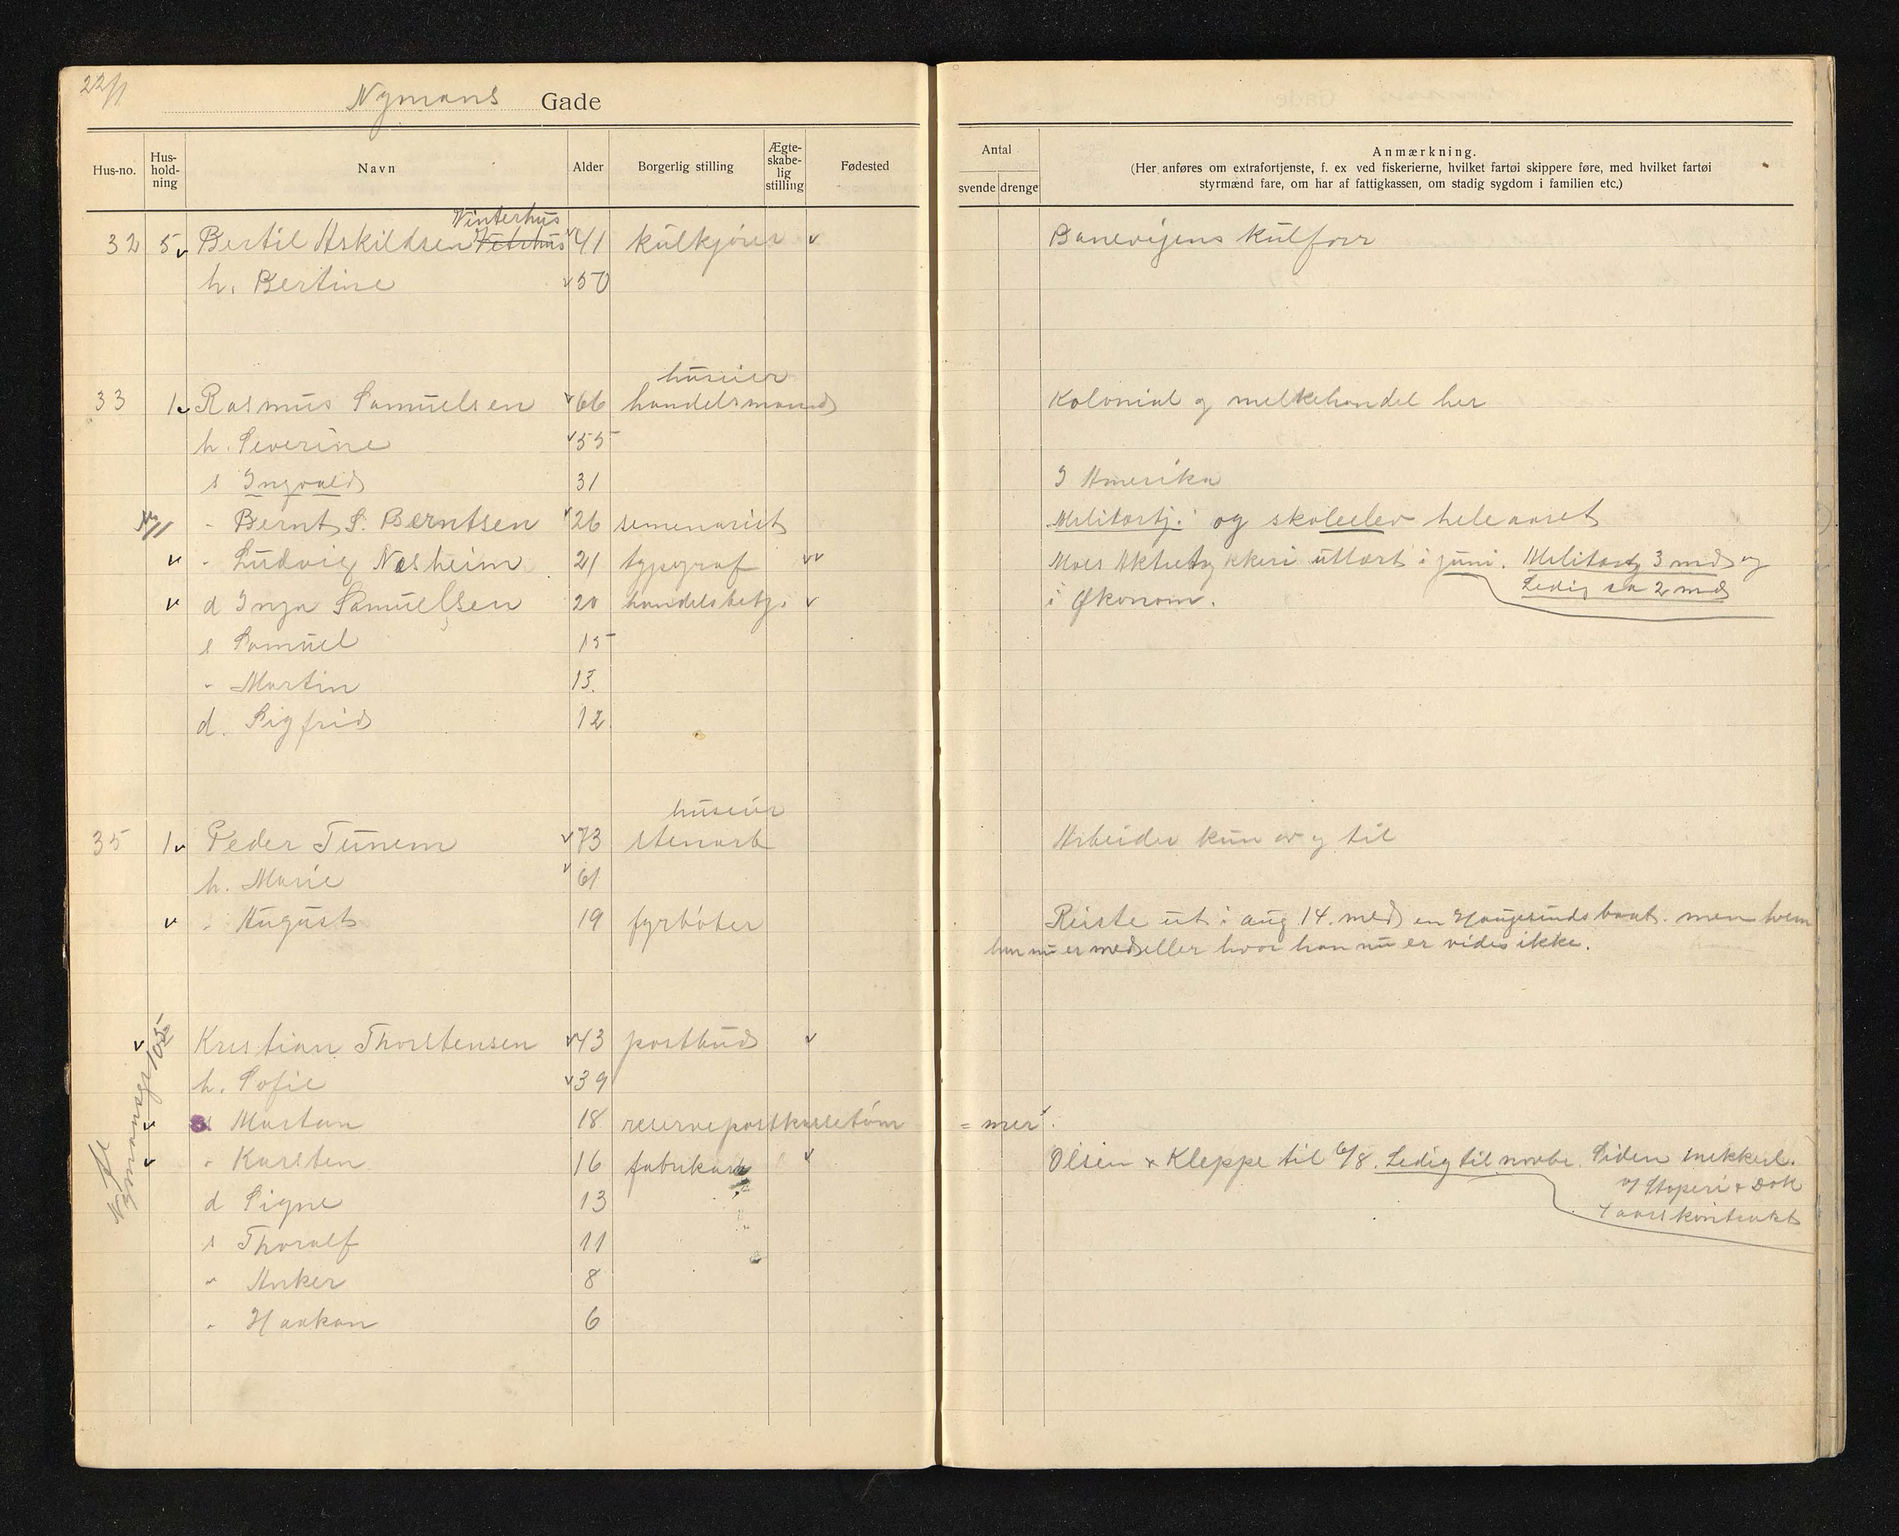 22/1
Nymans Gade
Hus-no. Hus-hold-ning Navn Alder Borgerlig stilling Ægte-skabe-lig stilling Fødested
Antal
svende drenge
Anmærkning.
(Her anføres om extrafortjenste, f. ex ved fiskerierne, hvilket fartøi skippere føre, med hvilket fartøi
styrmænd fare, om har af fattigkassen, om stadig sygdom i familien etc.)
Vinterhus
32 5 Bertil Askildsen Vetrhus 41 kulkjører Banevigens kulforr
h. Bertine 50
huseier
33 1 Rasmus Samuelsen 66 handelsmand Kolonial og melkehandel her
h. Severine 55
s Ingvald 31 I Amerika
" Bernt S. Berntsen 26 semenarist Militærtj. og skoleelev hele aaret
" Ludvig Næsheim 21 typograf utlært i juni. Militærtj 3 md og
Ledig ca 2 md
d Inga Samuelsen 20 handelsbetj. i Økonom.
s Samuel 15
" Martin 13.
d. Sigfrid 12
huseier
35 1 Peder Tunem 73 stenarb Arbeider kun av og til
h. Marie 61
" August 19 fyrbøter Reiste ut i aug 14. med en Haugesundsbaat. men hvem
han nu er med eller hvor han nu er vides ikke.
Kristian Thorstensen 43 postbud
h. Sofie 39
s Martan 18 reservepostkassetøm = mer.
" Karsten 16 fabrikarb Olsen & Kleppe til 6/8. Ledig til novbr. Siden mekkerl.
og Støperi & Dok
kontrakt
d Signe 13
s Thoralf 11
" Anker 8
" Haakon 6